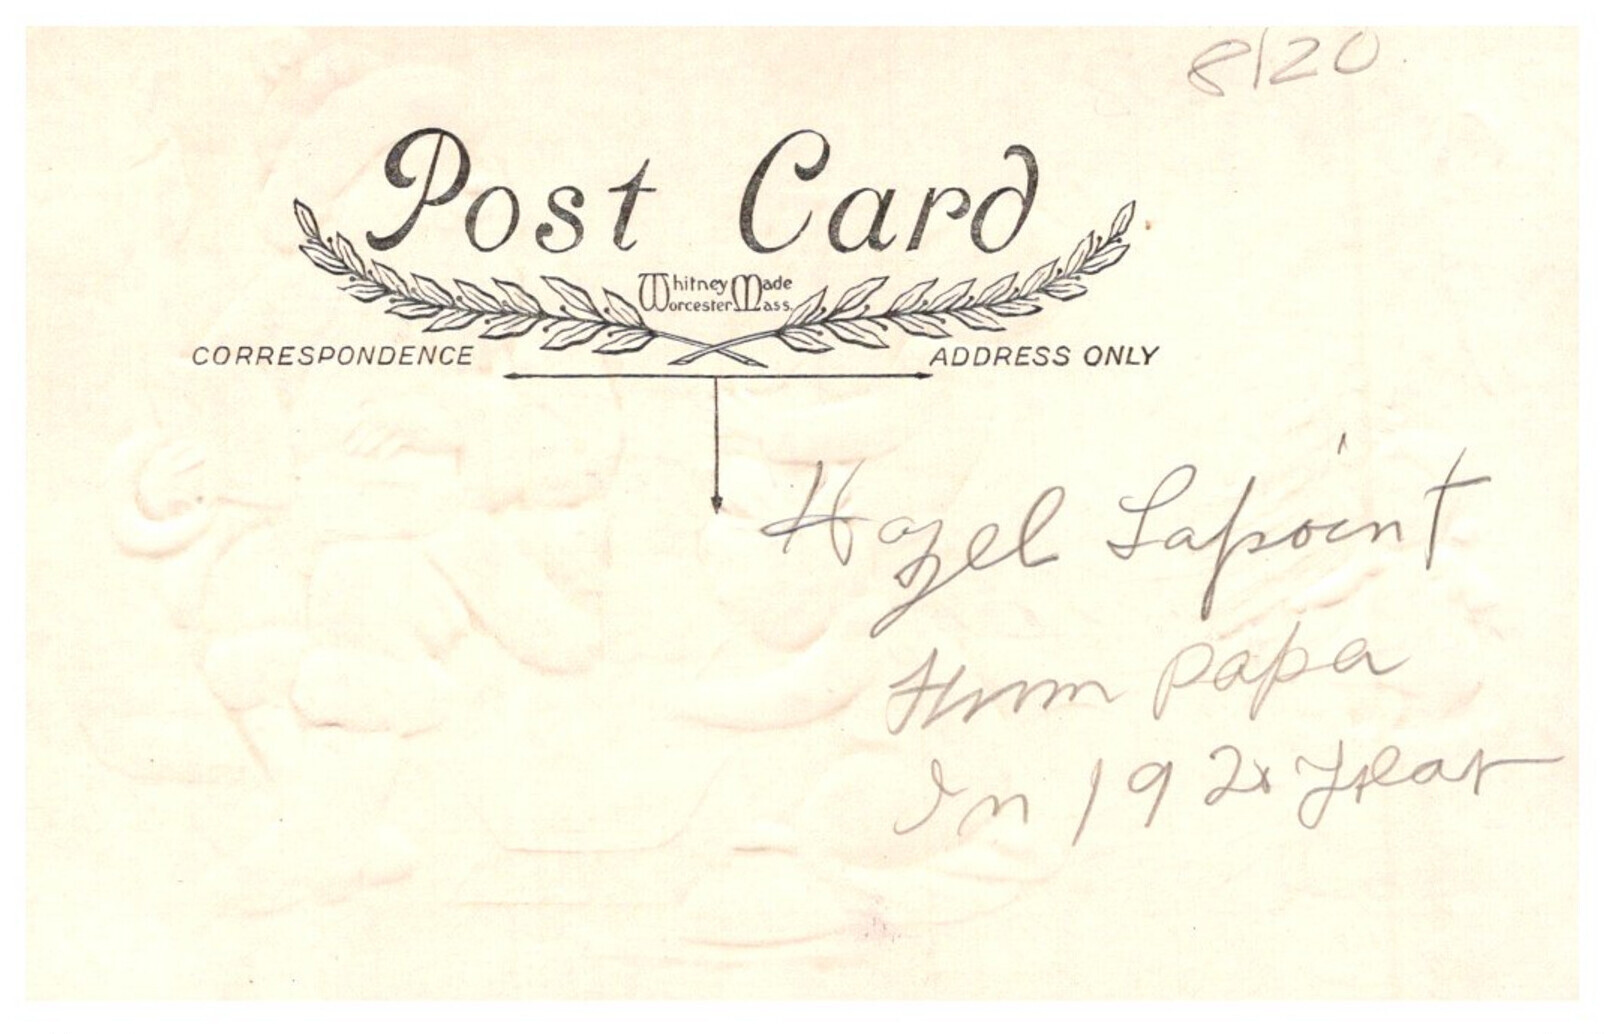 8/20
Post Card
Whitney Made
Worcester Mass.
CORRESPONDENCE
ADDRESS ONLY
Hazel Lapoint
From papa
In 192x Year